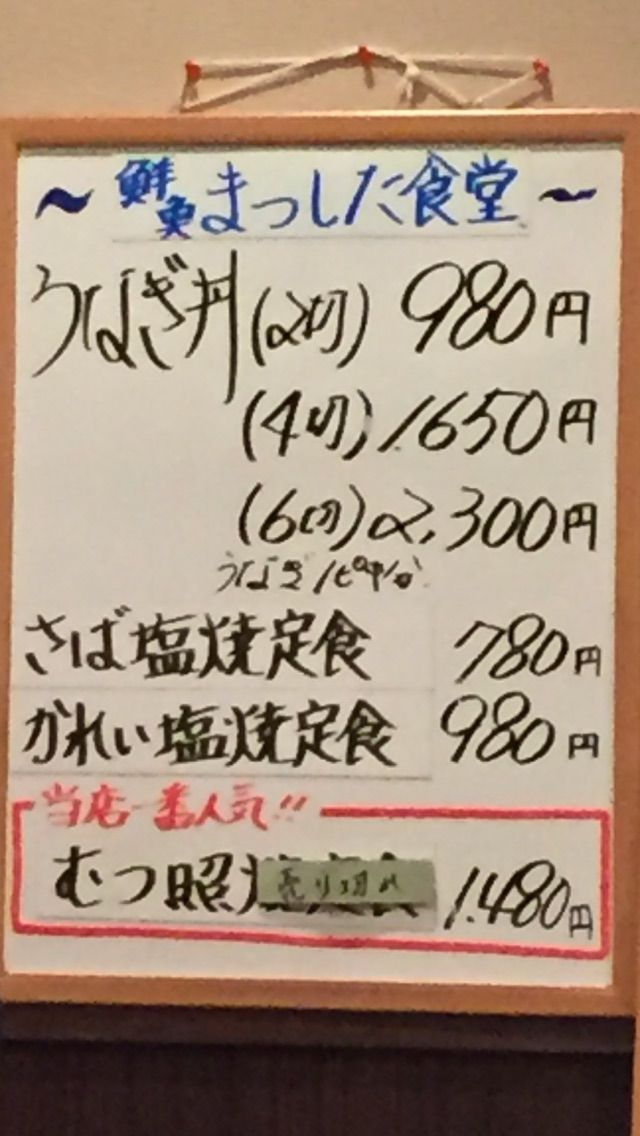 ～鮮魚まつした食堂～
うなぎ丼(2切) 980円
(4切) 1.650円
(6切) 2,300円
うなぎ
さば塩焼定食 780円
かれい塩焼定食 980円
当店一番人気!!
むつ照 売り切れ 1.480円